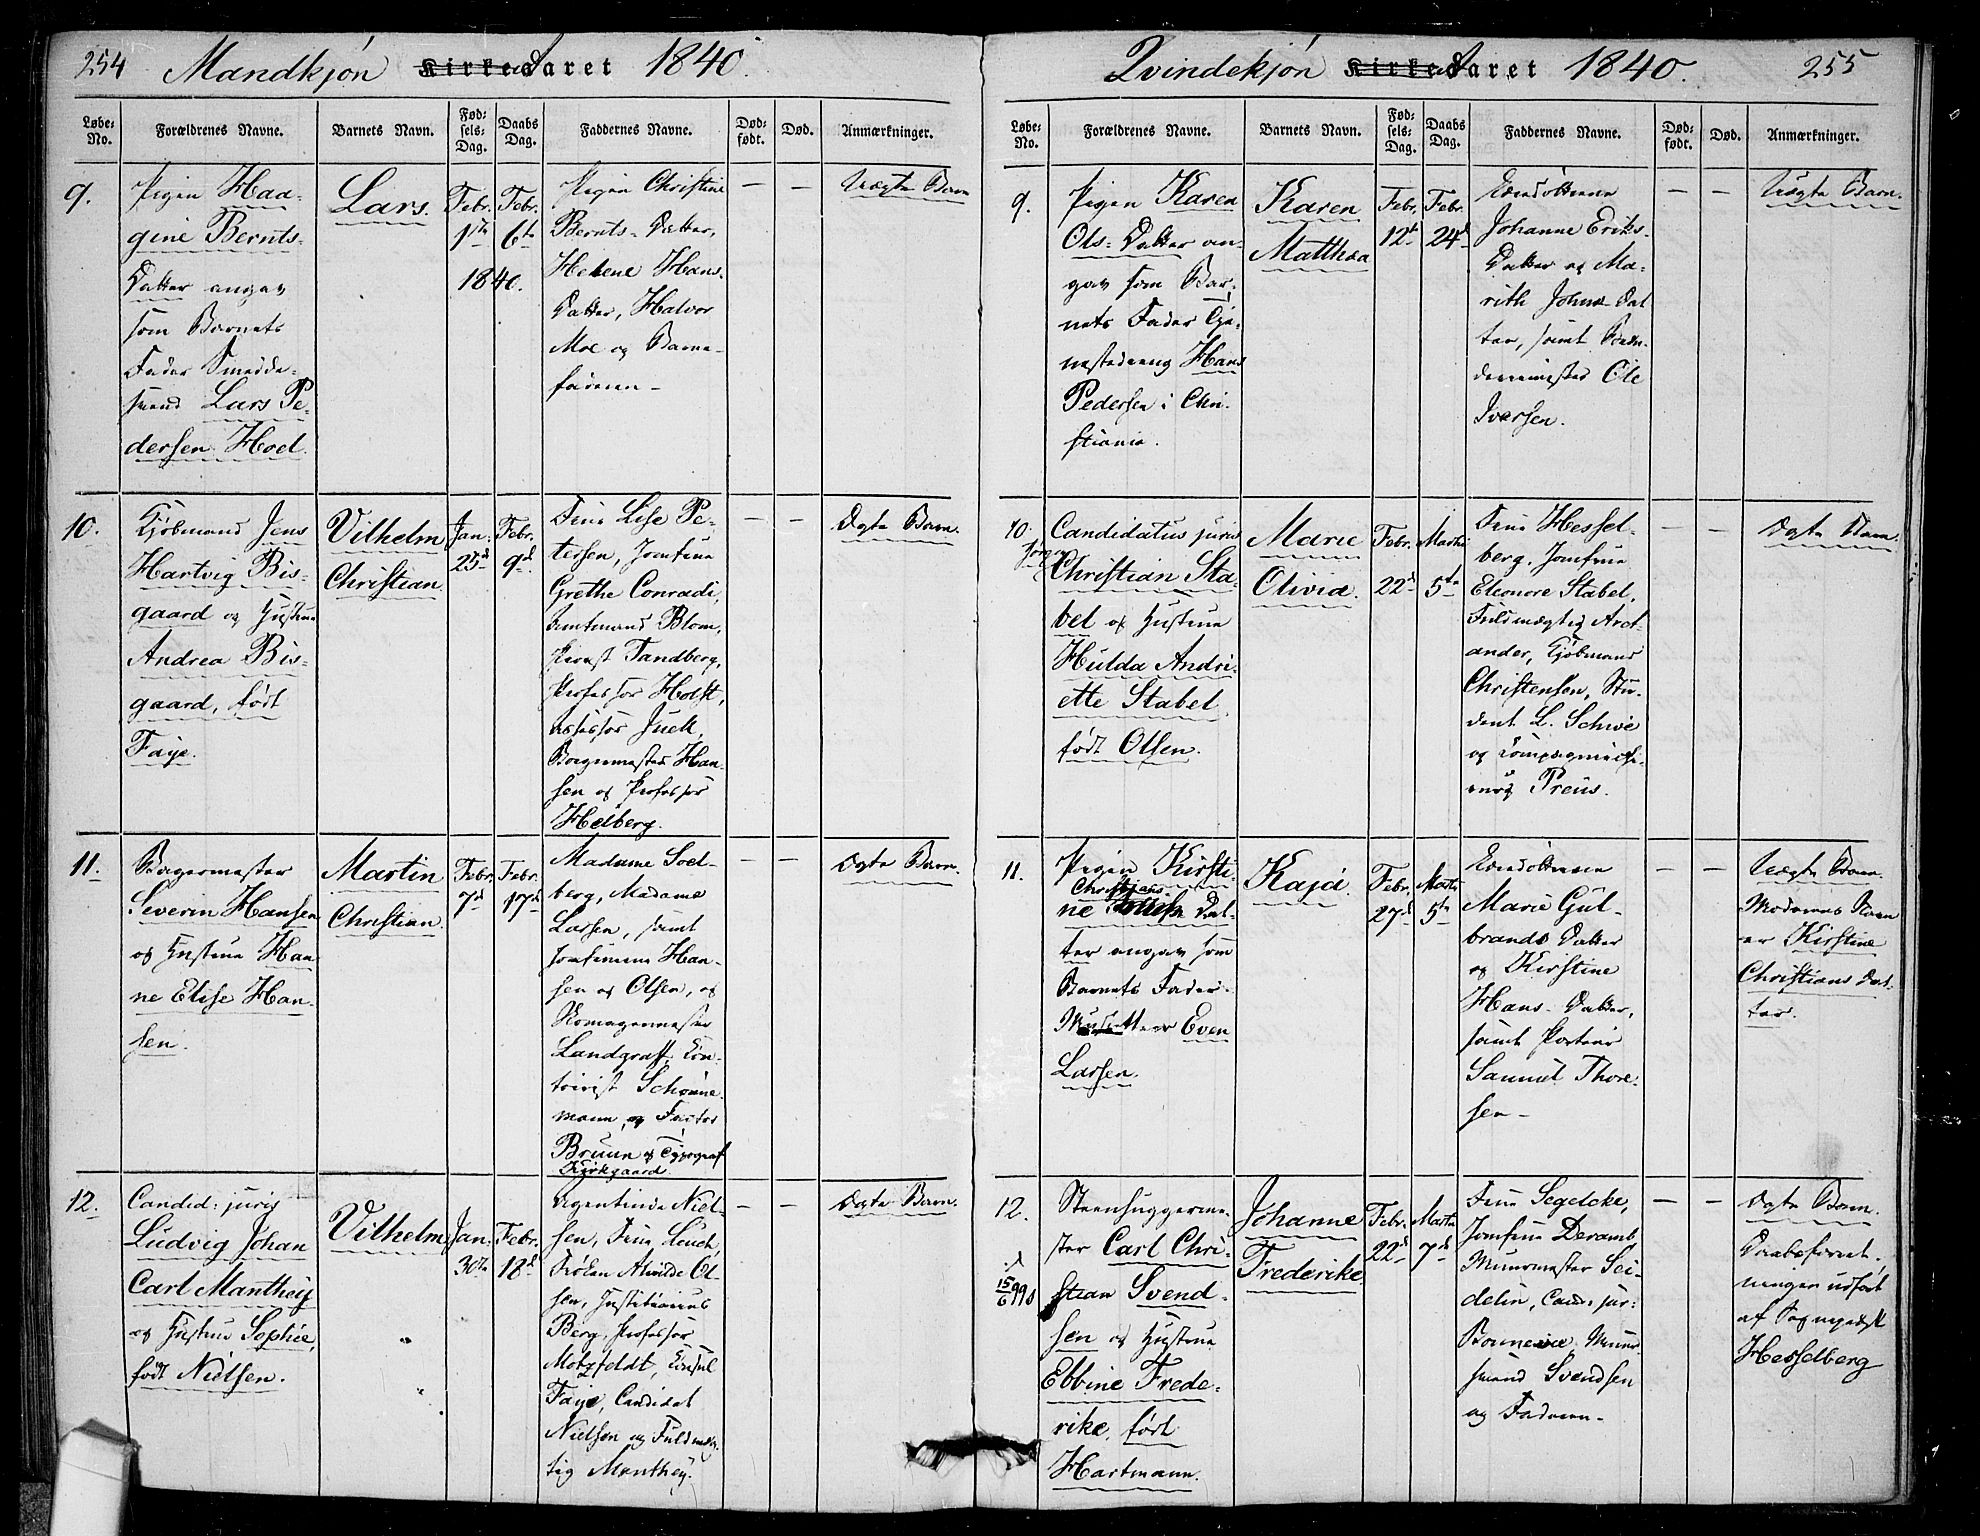 254 Mandkjøn Kirke-Aaret 1840.
Løbe-No. Forældrenes Navne. Barnets Navn. Fødsels-Dag. Daabs Dag. Faddernes Navne. Dødfødt. Død. Anmærkninger.
9.
Pigen Haa-
gine Bernts-
Datter angav
som Barnets
Fader Smedde-
svend Lars Pe-
dersen Hoel.
Lars.
Febr. 1ste
Febr. 6te
1840.
Pigen Christine
Bernts-Datter,
Helene Hans-
Datter, Halvor
Moe og Barne-
faderen —
— —
Uægte Barn
10.
Kjøbmand Jens
Hartvig Bis-
gaard og Hustrue
Andrea Bis-
gaard, født
Faye.
Vilhelm
Christian.
Jan. 25d
Febr. 9d
Frue Lise Pe-
tersen, Jomfrue
Grethe Conradi,
Amtmand Blom,
Provst Tandberg,
Professor Holst,
Assessor Juell,
Borgermester Han-
sen og Professor
Heiberg.
— —
Ægte Barn.
11.
Bagermester
Severin Hansen
og Hustrue Han-
ne Elise Han-
sen.
Martin
Christian.
Febr. 7d
Febr. 17de
Madame Soel-
berg, Madame
Larsen, samt
Jomfruerne Han-
sen og Olsen, og
Skomagermester
Landgraff, Con-
toirist Schønne-
mann, og Factor
Bruun og Typograf
Kirkgaard.
— —
Ægte Barn.
12.
Candid: juris
Ludvig Johan
Carl Manthey
og Hustrue Sophie,
født Nielsen.
Vilhelm
Jan. 30te
Febr. 18d
Agentinde Niel-
sen, Frue Leuch,
Frøken Alvilde Ol-
sen, Institubestyrer
Berg, Professor
Motzfeldt, Consul
Faye, Candidat
Nielsen og Fuldmæg-
tig Manthey.
— —
Ægte Barn.
Qvindekjøn Kirke-Aaret 1840. 255
Løbe-No. Forældrenes Navne. Barnets Navn. Fødsels-Dag. Daabs Dag. Faddernes Navne. Dødfødt. Død. Anmærkninger.
9.
Pigen Karen
Ols-Datter an-
gav som Bar-
nets Fader Tje-
nestedreng Hans
Pedersen i Chri-
stiania.
Karen
Matthea
Febr. 12te
Febr. 24d
Johanne Eriks-
Datter og Ma-
rith Johns-Dat
ter, samt
Ole
Iversen.
— —
Uægte Barn.
10.
Candidatus juris
Jørgen
Christian Sta-
bel og Hustrue
Hulda Andri-
ette Stabel
født Olsen.
Marie
Olivia.
Febr. 22d
Martii 5te
Frue Hessel-
berg, Jomfrue
Eleonore Stabel,
Fuldmægtig Arct-
ander, Kjøbmand
Christensen, Stu-
dent L. Schwe
og Compagniechi-
rurg Preus.
— —
Ægte Barn.
11.
Pigen Kirsti-
Christians
ne Dat-
ter angav som
Barnets Fader
Musketteer Even
Larsen.
Kaja.
Febr. 27d
Martii 5te
Marie Gul-
brands Datter
og Kirstine
Hans-Datter,
samt Porteur
Samuel Thore-
sen —
— —
Uægte Barn.
Moderens Navn
er Kirstine
Christians Dat-
ter.
12.
15/6 99
Steenhuggerme-
ster Carl Chri-
stian Svend-
sen og Hustrue
Ebbine Frede-
rike, født
Hartmann.
Johanne
Frederike
Febr. 22d
Martii 7de
Frue Segelcke,
Jomfrue Deramb,
Muurmester Sei-
delin, Cand: jur:
Bonnevie, Muur-
svend Svendsen
og Faderen —
— —
Ægte Barn.
Daabsforret-
ningen udført
af Sognepræst
Hesselberg